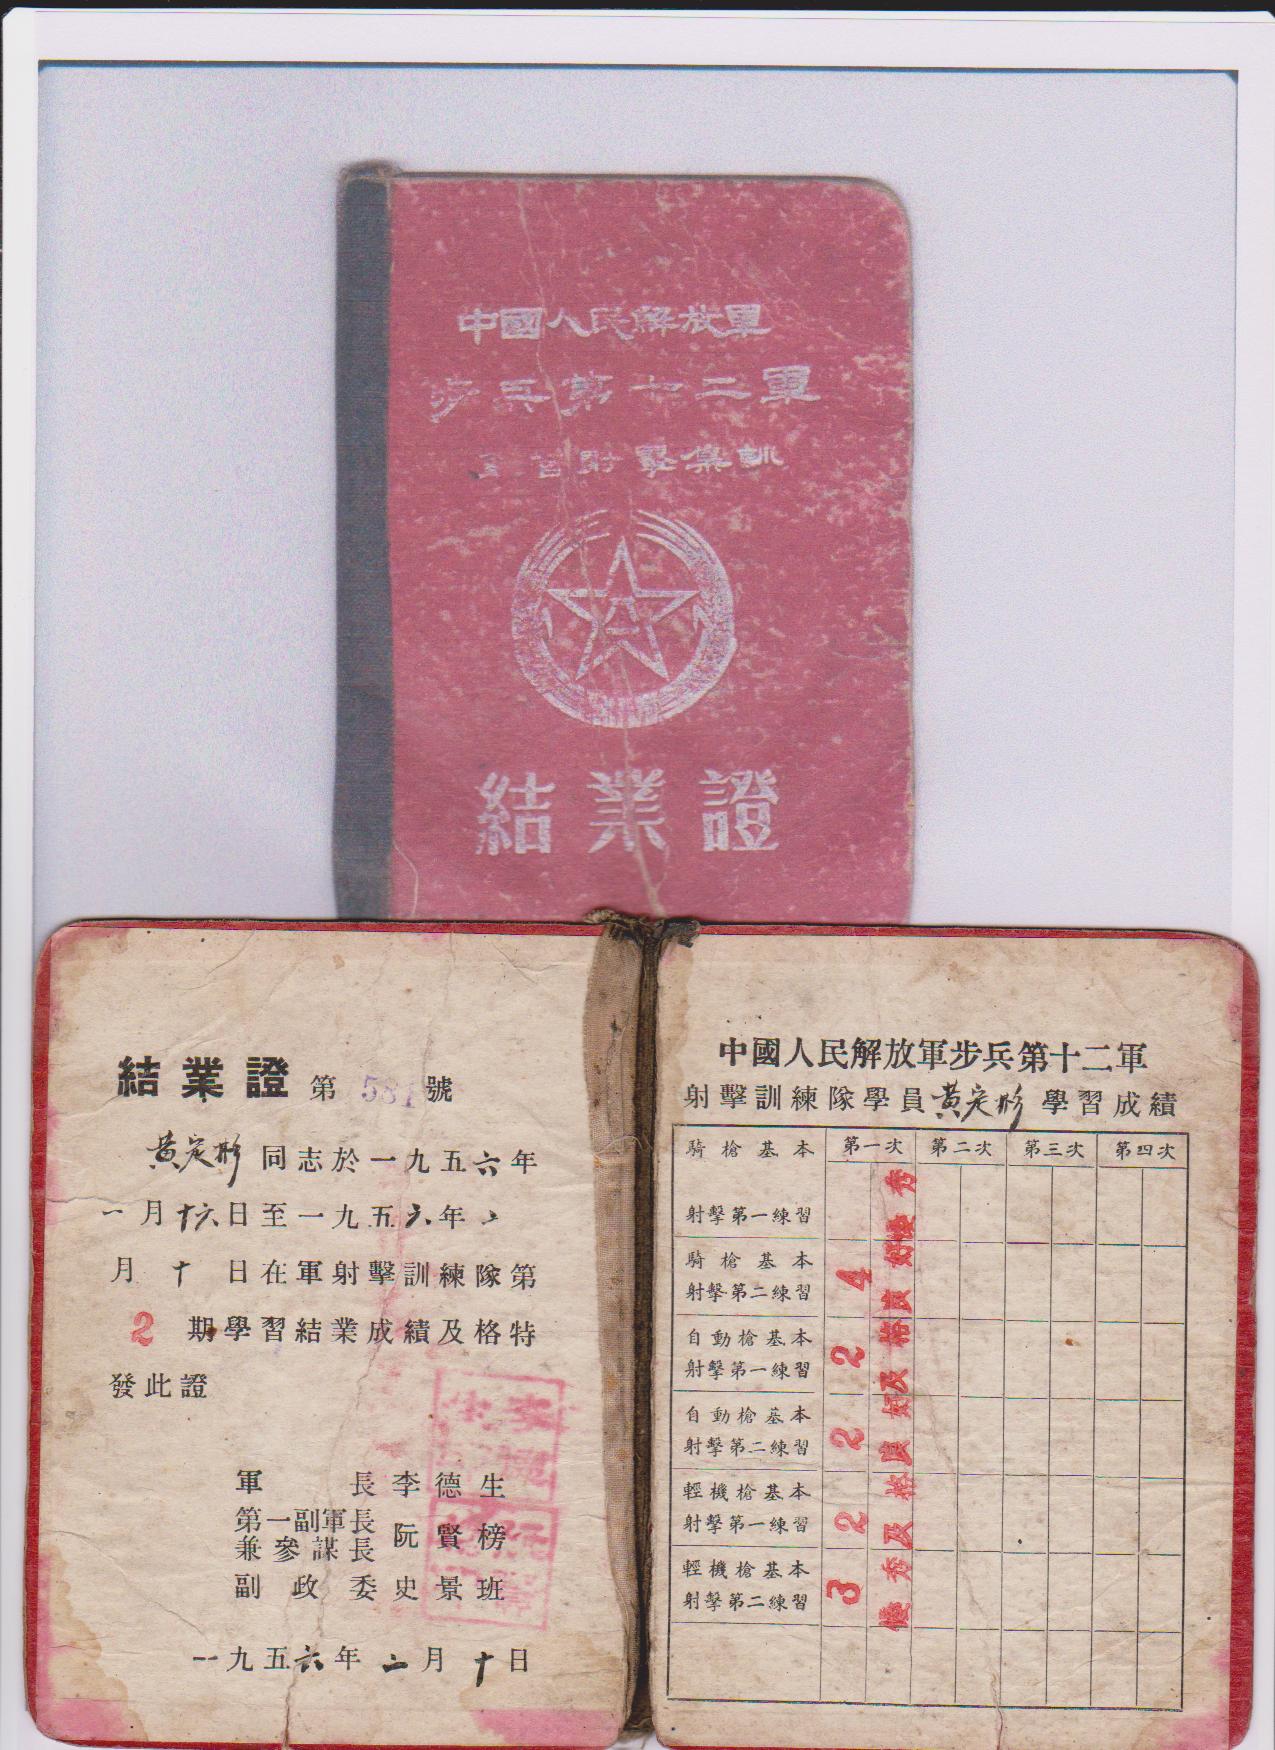 中國人民解放軍
步兵第十二軍
射擊集訓
結業證
結業證 第 581 號
黃定彬 同志於一九五六年
一月十六日至一九五六年二
月十日在軍射擊訓練隊第
2 期學習結業成績及格特
發此證
軍長李德生
第一副軍長
兼參謀長 阮賢榜
副政委史景班
一九五六年二月十日
中國人民解放軍步兵第十二軍
射擊訓練隊學員黃定彬學習成績
騎槍基本 第一次 第二次 第三次 第四次
射擊第一練習
騎槍基本
射擊第二練習 4
自動槍基本
射擊第一練習 2
自動槍基本
射擊第二練習 2
輕機槍基本
射擊第一練習 2
輕機槍基本
射擊第二練習 3 優秀